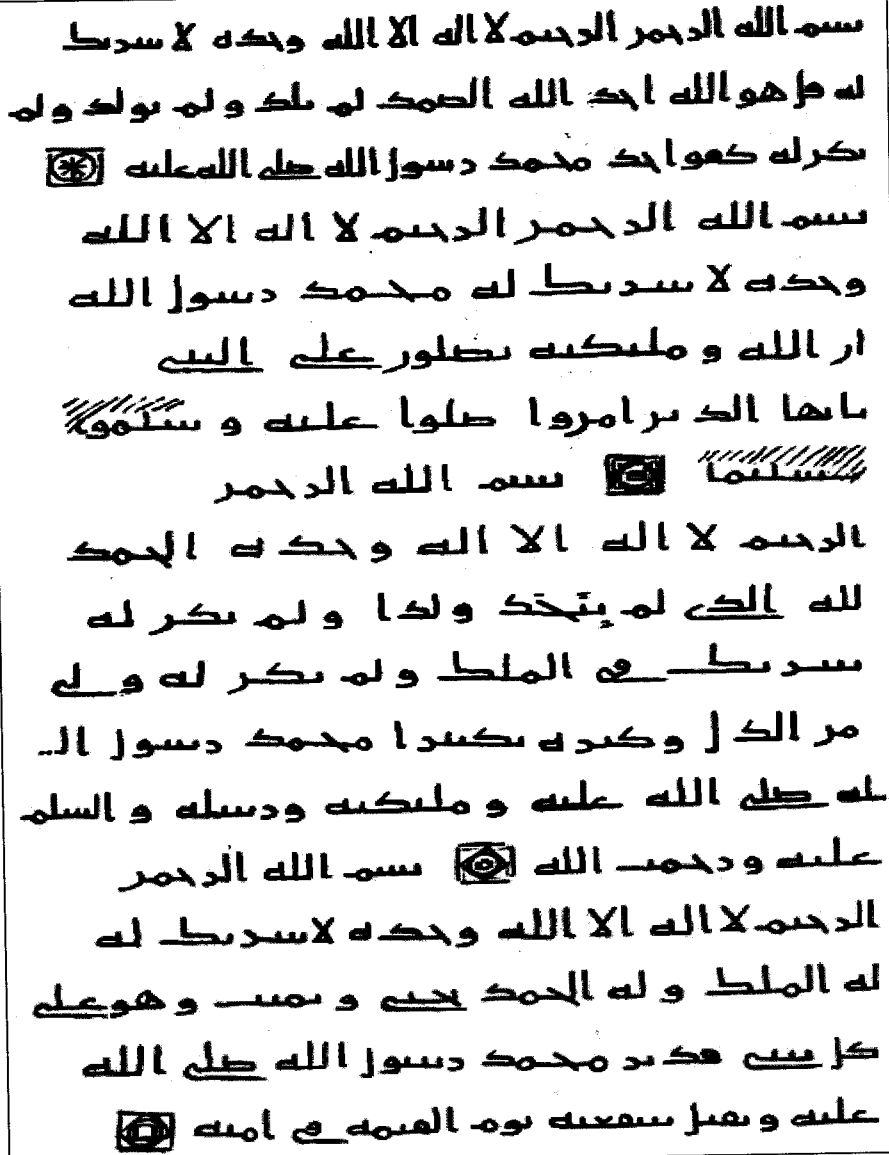 بسم الله الرحمن الرحيم لا اله الا الله وحده لا شريك
له قل هو الله احد الله الصمد لم يلد و لم يولد و لم
يكن له كفوا احد محمد رسول الله صلى الله عليه
بسم الله الرحمن الرحيم لا اله الا الله
وحده لا شريك له محمد رسول الله
ان الله و مليكته يصلون على النبي
يايها الذين امنوا صلوا عليه و سلموا
تسليما بسم الله الرحمن
الرحيم لا اله الا الله وحده الحمد
لله الذي لم يتخذ ولدا و لم يكن له
شريك في الملك و لم يكن له ولي
من الذل و كبره تكبيرا محمد رسول ال
له صلى الله عليه و مليكته ورسله و السلم
عليه ورحمت الله بسم الله الرحمن
الرحيم لا اله الا الله وحده لا شريك له
له الملك و له الحمد يحيي و يميت و هو على
كل شي قدير محمد رسول الله صلى الله
عليه و تقبل شفعته يوم القيمه في امته